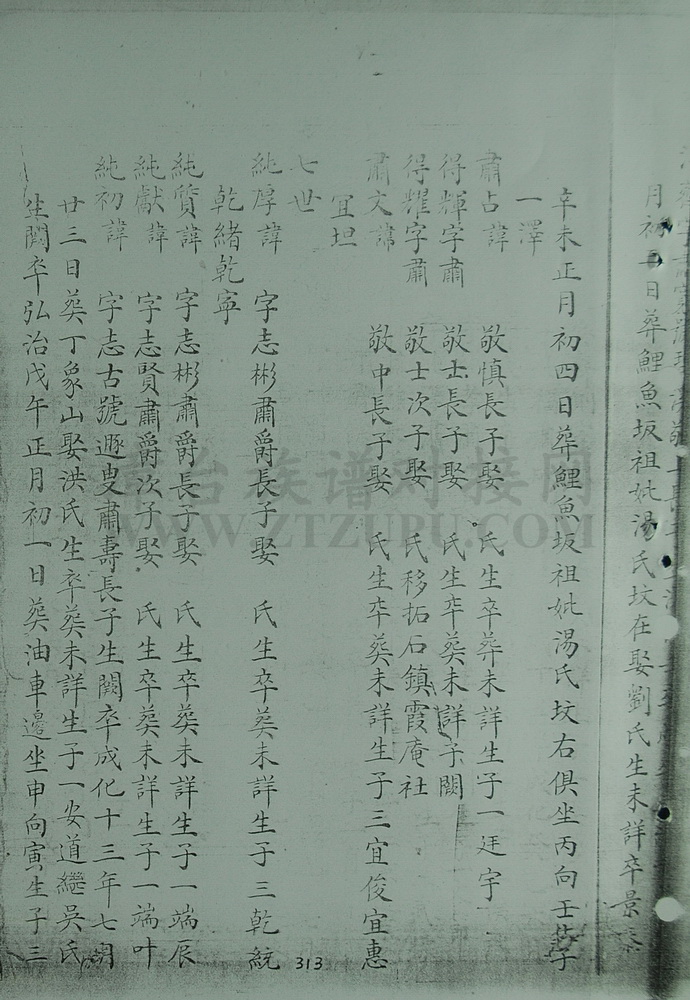 月初五日葬鯉魚坂祖妣湯氏坟在娶劉氏生未詳卒景泰
辛未正月初四日葬鯉魚坂祖妣湯氏坟右俱坐丙向壬生子
一澤
肅占諱 敬慎長子娶 氏生卒葬未詳生子一廷宇
得輝字肅 敬士長子娶 氏生卒葵未詳子闕
得耀字肅 敬士次子娶 氏移拓石鎮霞庵社
肅文諱 敬中長子娶 氏生卒葵未詳生子三宜俊宜惠
宜坦
七世
純厚諱 字志彬肅爵長子娶 氏生卒葵未詳生子三乾統
乾緒乾寧
純質諱 字志彬肅爵長子娶 氏生卒葵未詳生子一端辰
純獻諱 字志賢肅爵次子娶 氏生卒葵未詳生子一端叶
純初諱 字志古號遯叟肅壽長子生闕卒成化十三年七月
廿三日葵丁象山娶洪氏生卒葵未詳生子一安道繼吳氏
生闕卒弘治戊午正月初一日葵油車邊坐申向寅生子三
313
郑台族谱对接网
WWW.ZTZUPU.COM